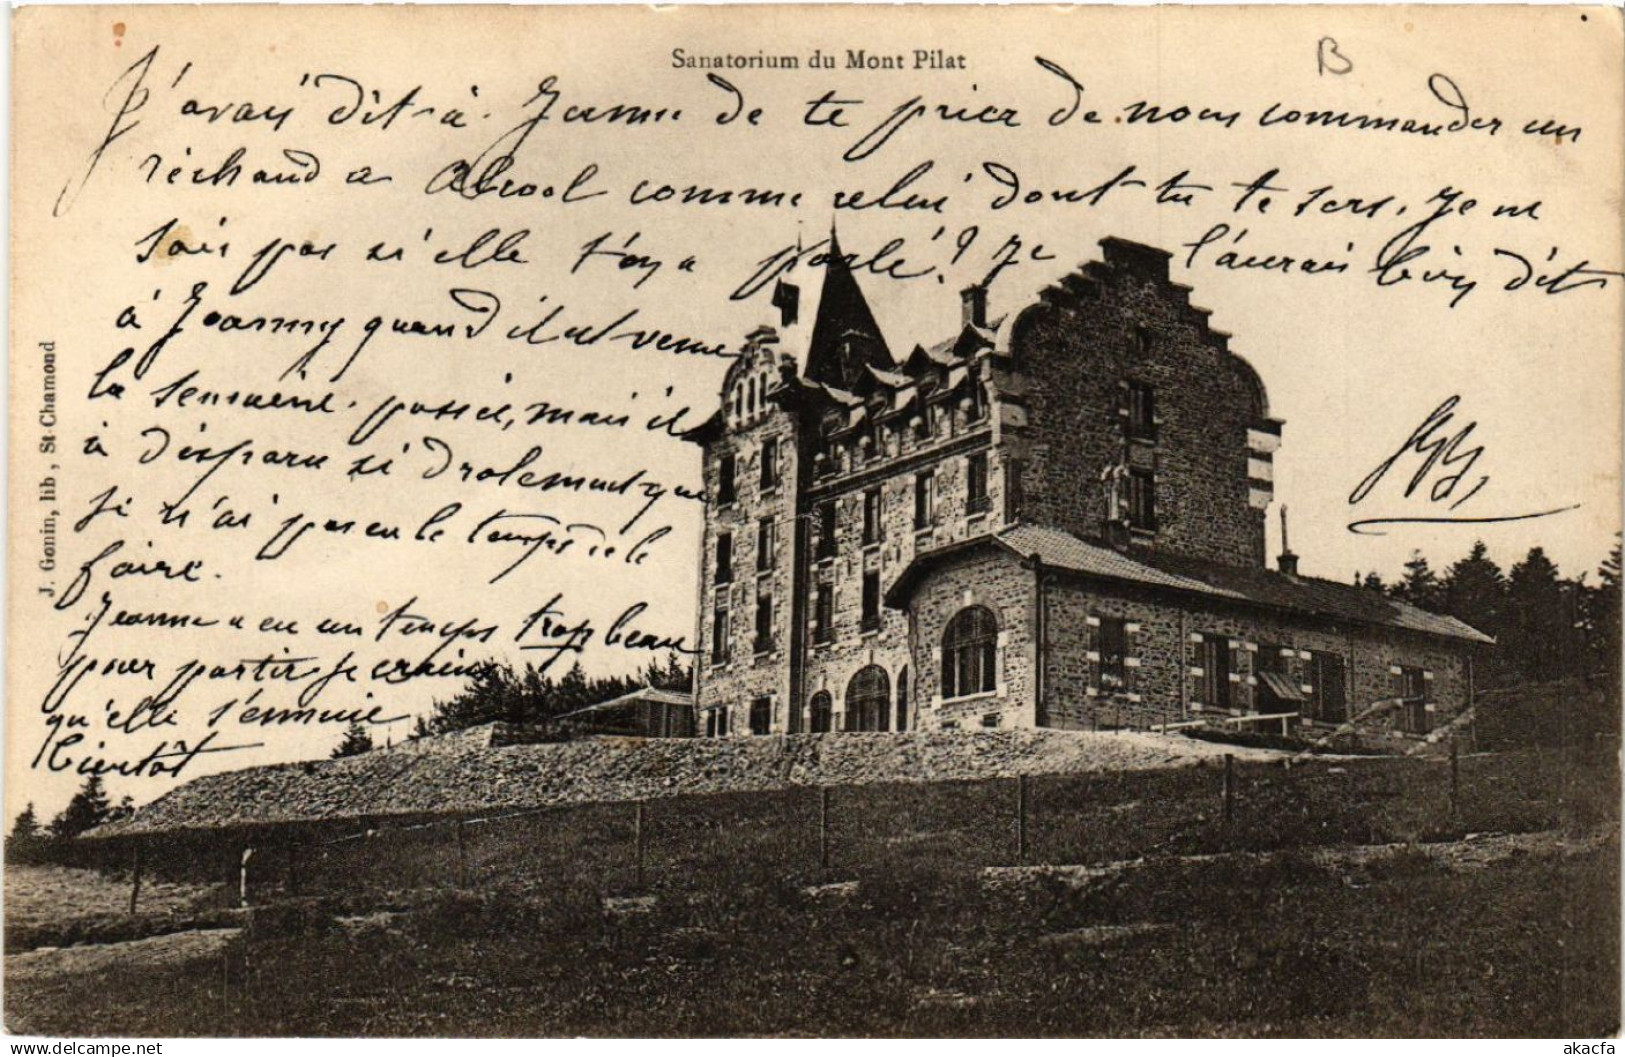 Sanatorium du Mont Pilat
B
J'avais dit à Jeanne de te prier de nous commander un
réchaud a Alcool comme celui dont tu te sers. Je ne
sais pas si elle t'en a parlé! ? Je l'aurais bien dit
à Jeanny quand il est venu
la semaine passée, mais il
à disparu si drolement que
je n'ai pas eu le temps de le
faire.
Jeanne a eu un temps trop beau
pour partir. Je crains
qu'elle s'ennuie
bientôt
J. Gonin, lib, St-Chamond
akacfa
www.delcampe.net